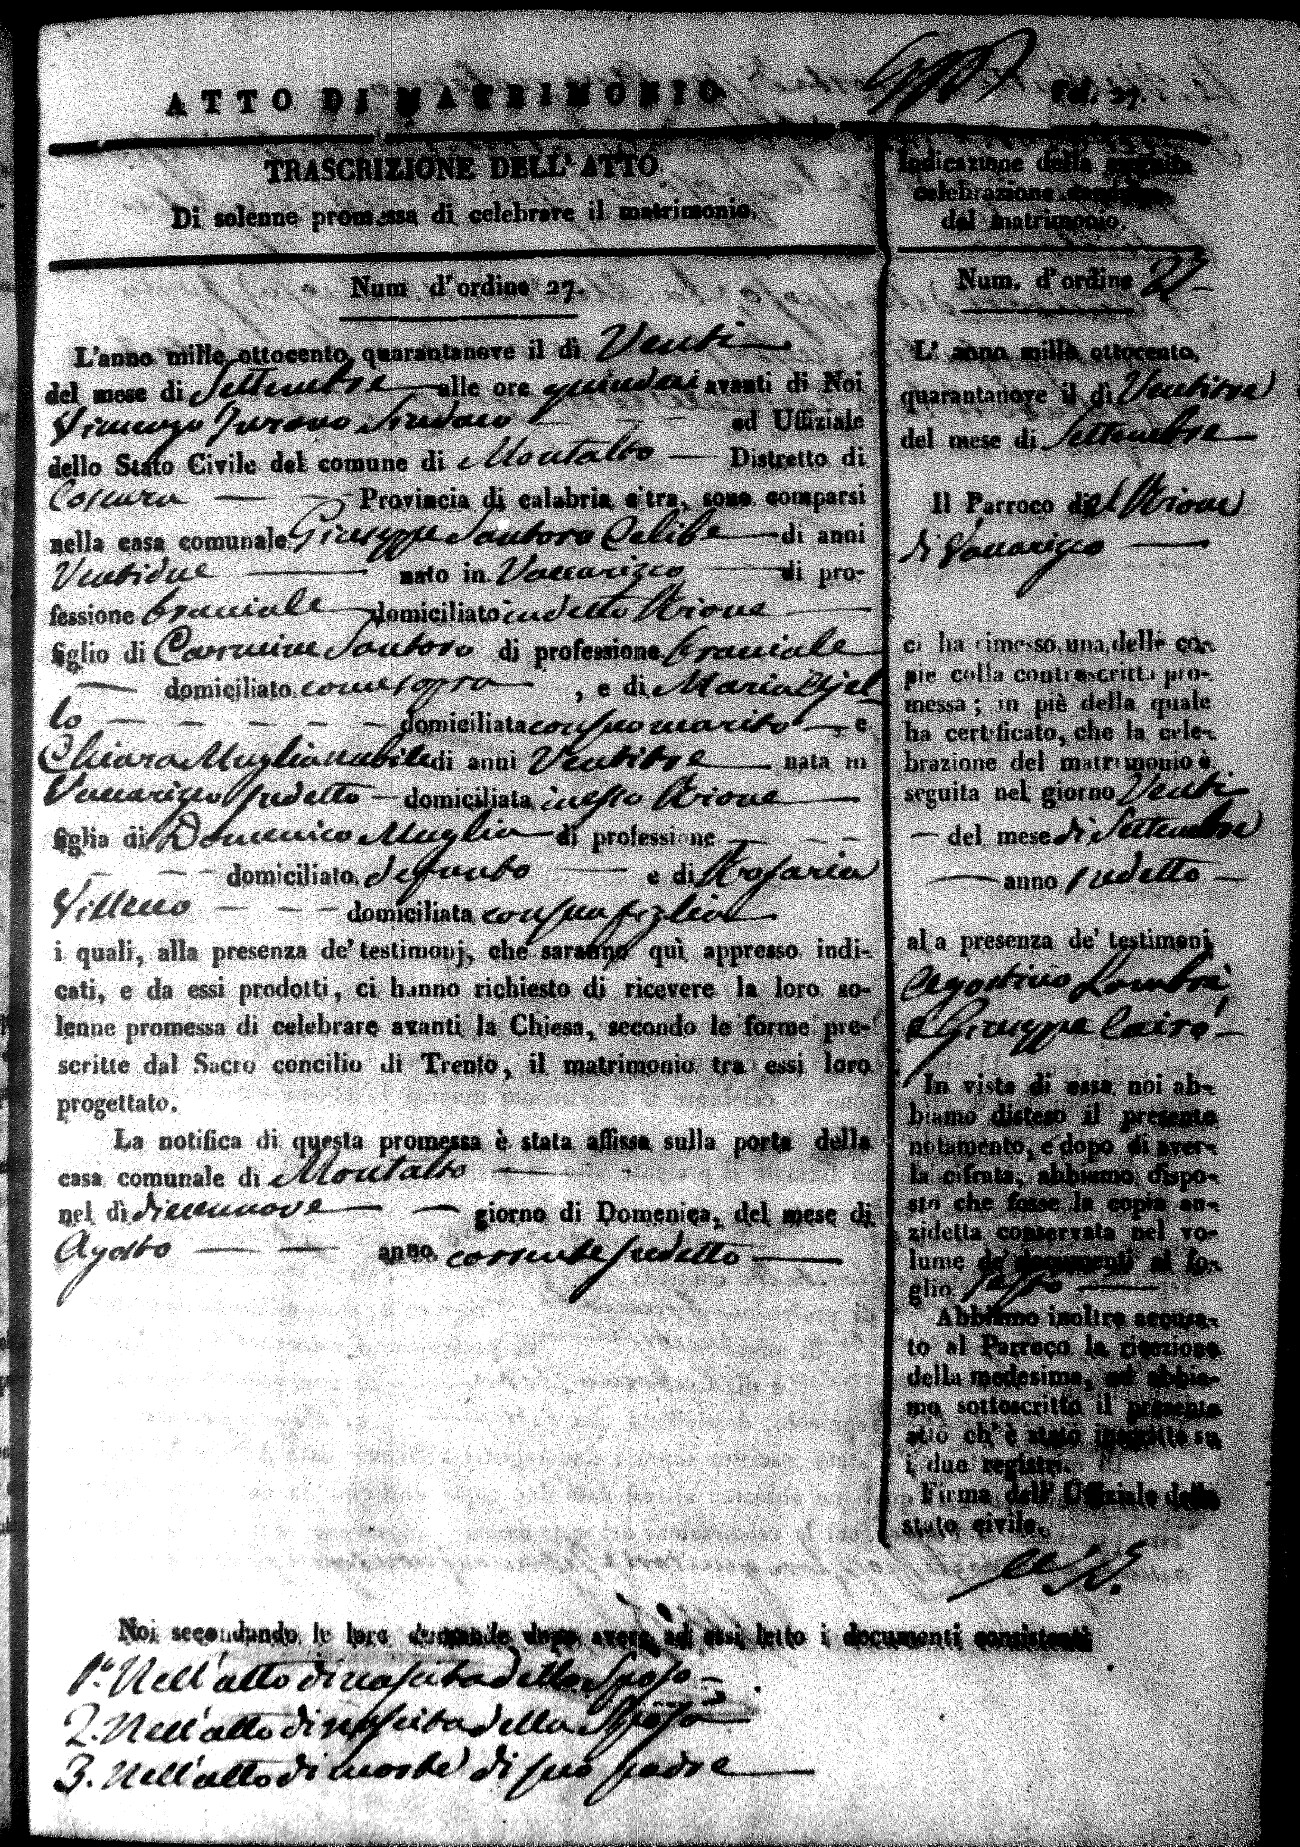 ATTO DI MATRIMONIO
Fol. 27.
TRASCRIZIONE DELL'ATTO
Di solenne promessa di celebrare il matrimonio.
Num d'ordine 27.
L'anno mille ottocento quarantanove il dì Venti
del mese di Settembre alle ore quindici avanti di Noi
Vincenzo Sindaco ed Uffiziale
dello Stato Civile del comune di Montalto Distretto di
Cosenza Provincia di calabria citra, sono comparsi
nella casa comunale Giuseppe Santoro Celibe di anni
Ventidue nato in Vaccarizzo di pro-
fessione braciale domiciliato in detto Rione
figlio di Carmine Santoro di professione braciale
domiciliato come sopra , e di Maria
lo domiciliata con suo marito e
Chiara Muglia nubile di anni Ventitre nata in
Vaccarizzo sudetto domiciliata in esso Rione
figlia di Domenico Muglia di professione
domiciliato defunto e di Rosaria
Villeno domiciliata con sua figlia
i quali, alla presenza de' testimonj, che saranno quì appresso indi-
cati, e da essi prodotti, ci hanno richiesto di ricevere la loro so-
lenne promessa di celebrare avanti la Chiesa, secondo le forme pre-
scritte dal Sacro concilio di Trento, il matrimonio tra essi loro
progettato.
La notifica di questa promessa è stata affissa sulla porta della
casa comunale di Montalto
nel dì diecennove giorno di Domenica, del mese di
Agosto anno corrente sudetto
Noi secondando le loro domande dopo avere ad essi letto i documenti consistenti
1.o Nell'atto di nascita dello Sposo
2. Nell'atto di nascita della Sposa
3. Nell'atto di morte di suo padre
Indicazione della seguita
celebrazione
del matrimonio.
Num. d'ordine 27
L'anno mille ottocento
quarantanove il dì Ventitre
del mese di Settembre
Il Parroco del Rione
di Vaccarizzo
ci ha rimesso una delle co-
pie colla controscritta pro-
messa; in piè della quale
ha certificato, che la cele-
brazione del matrimonio è
seguita nel giorno Venti
del mese di Settembre
anno sudetto
alla presenza de' testimonj
Agostino Lombra
e Giuseppe Cairo
In vista di essa noi ab-
biamo disteso il presente
notamento, e dopo di aver-
la cifrata, abbiamo dispo-
sto che fosse la copia an-
zidetta conservata nel vo-
lume de' documenti al fo-
glio
Abbiamo inoltre accusa-
to al Parroco la ricezione
della medesima, ed abbia-
mo sottoscritto il presente
atto ch'è stato inscritto su
i due registri.
Firma dell' Offiziale dello
stato civile.